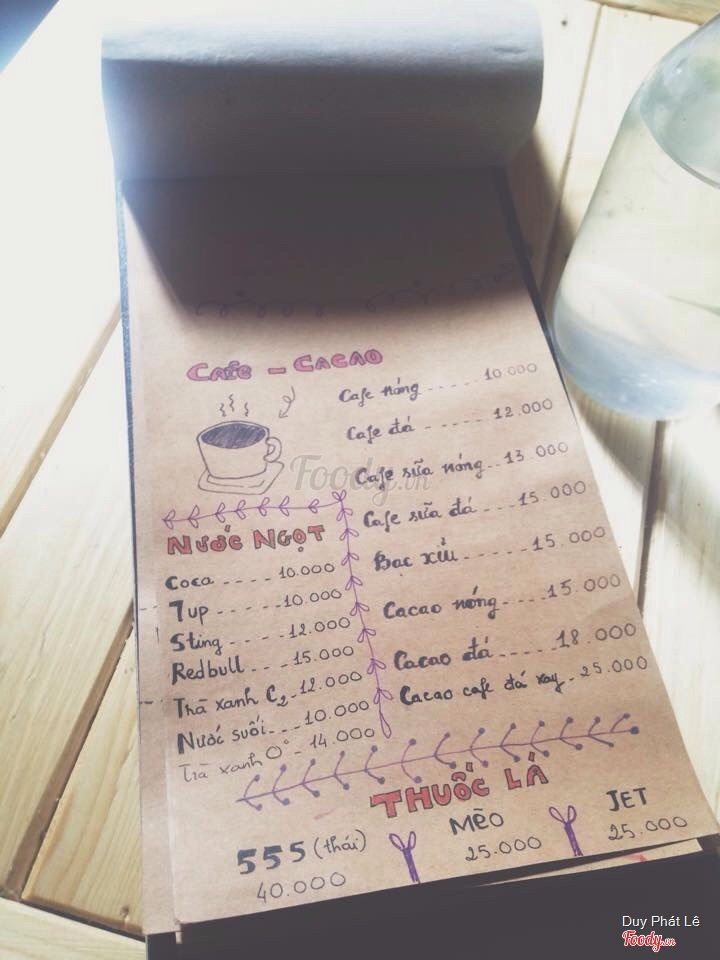 CAFE - CACAO
Cafe nóng ------ 10.000
Cafe đá ------ 12.000
Cafe sữa nóng -- 13.000
Cafe sữa đá ----- 15.000
Bạc xỉu ------ 15.000
Cacao nóng ---- 15.000
Cacao đá ----- 18.000
Cacao cafe đá xay - 25.000
NƯỚC NGỌT
Coca ---- 10.000
7up ------ 10.000
Sting ---- 12.000
Redbull --- 15.000
Trà xanh C2 - 12.000
Nước suối --- 10.000
Trà xanh 0° - 14.000
THUỐC LÁ
555 (thái)
40.000
MÈO
25.000
JET
25.000
Foody.vn
Duy Phát Lê
Foody.vn